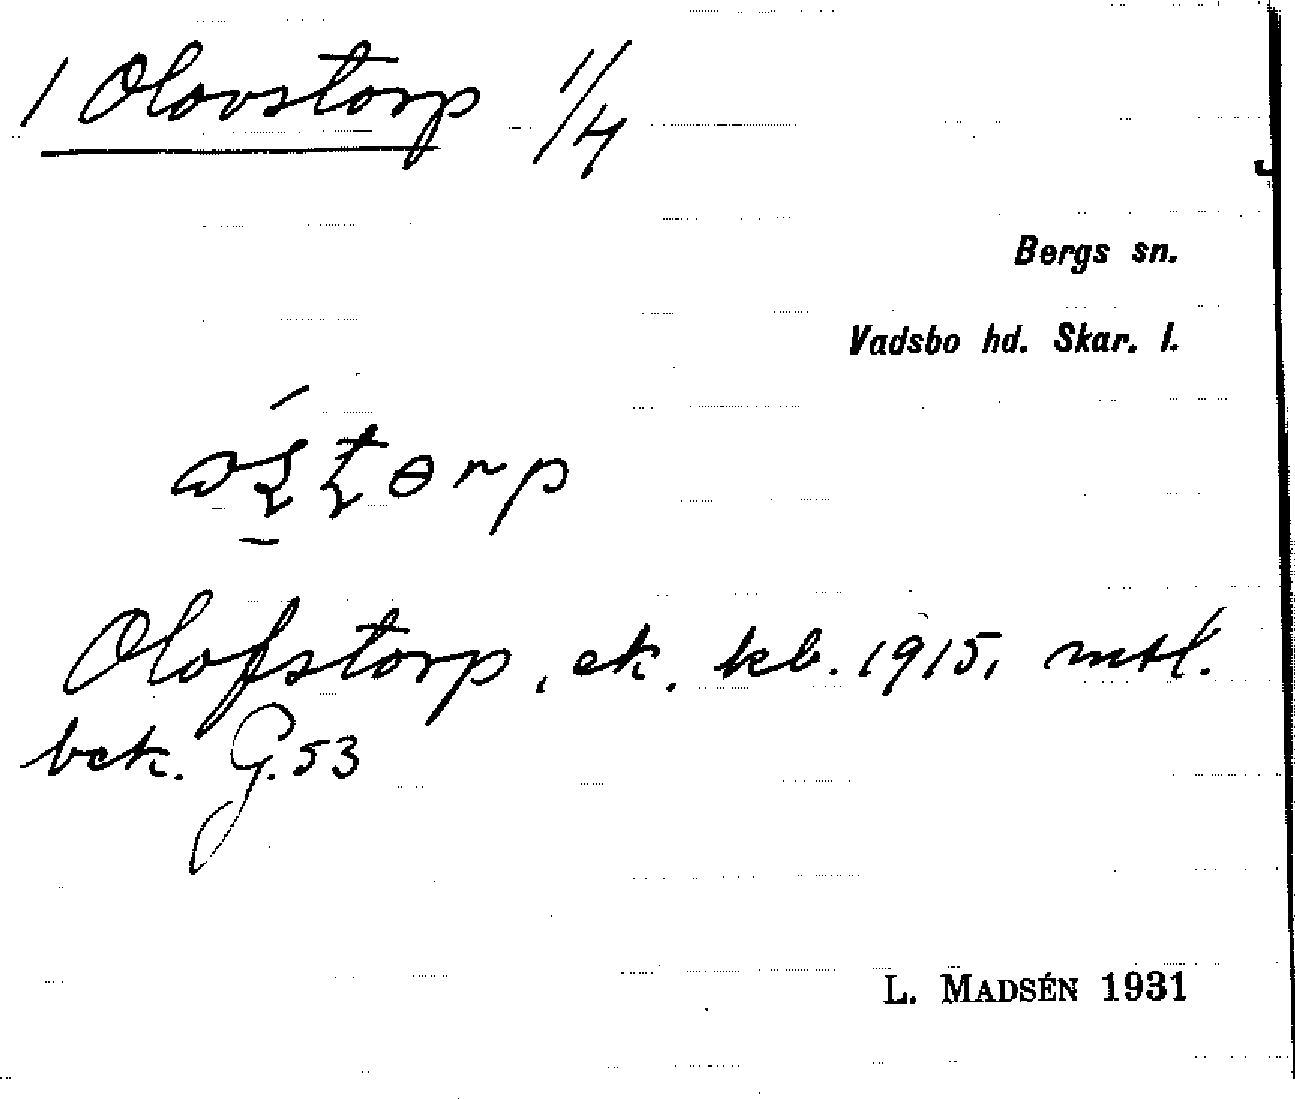 1 Olovstorp 1/4
Bergs sn.
Vadsbo hd. Skar. l.
Olofstorp, ek. kb. 1915, mtl.
bck. G. 53
L. MADSÉN 1931